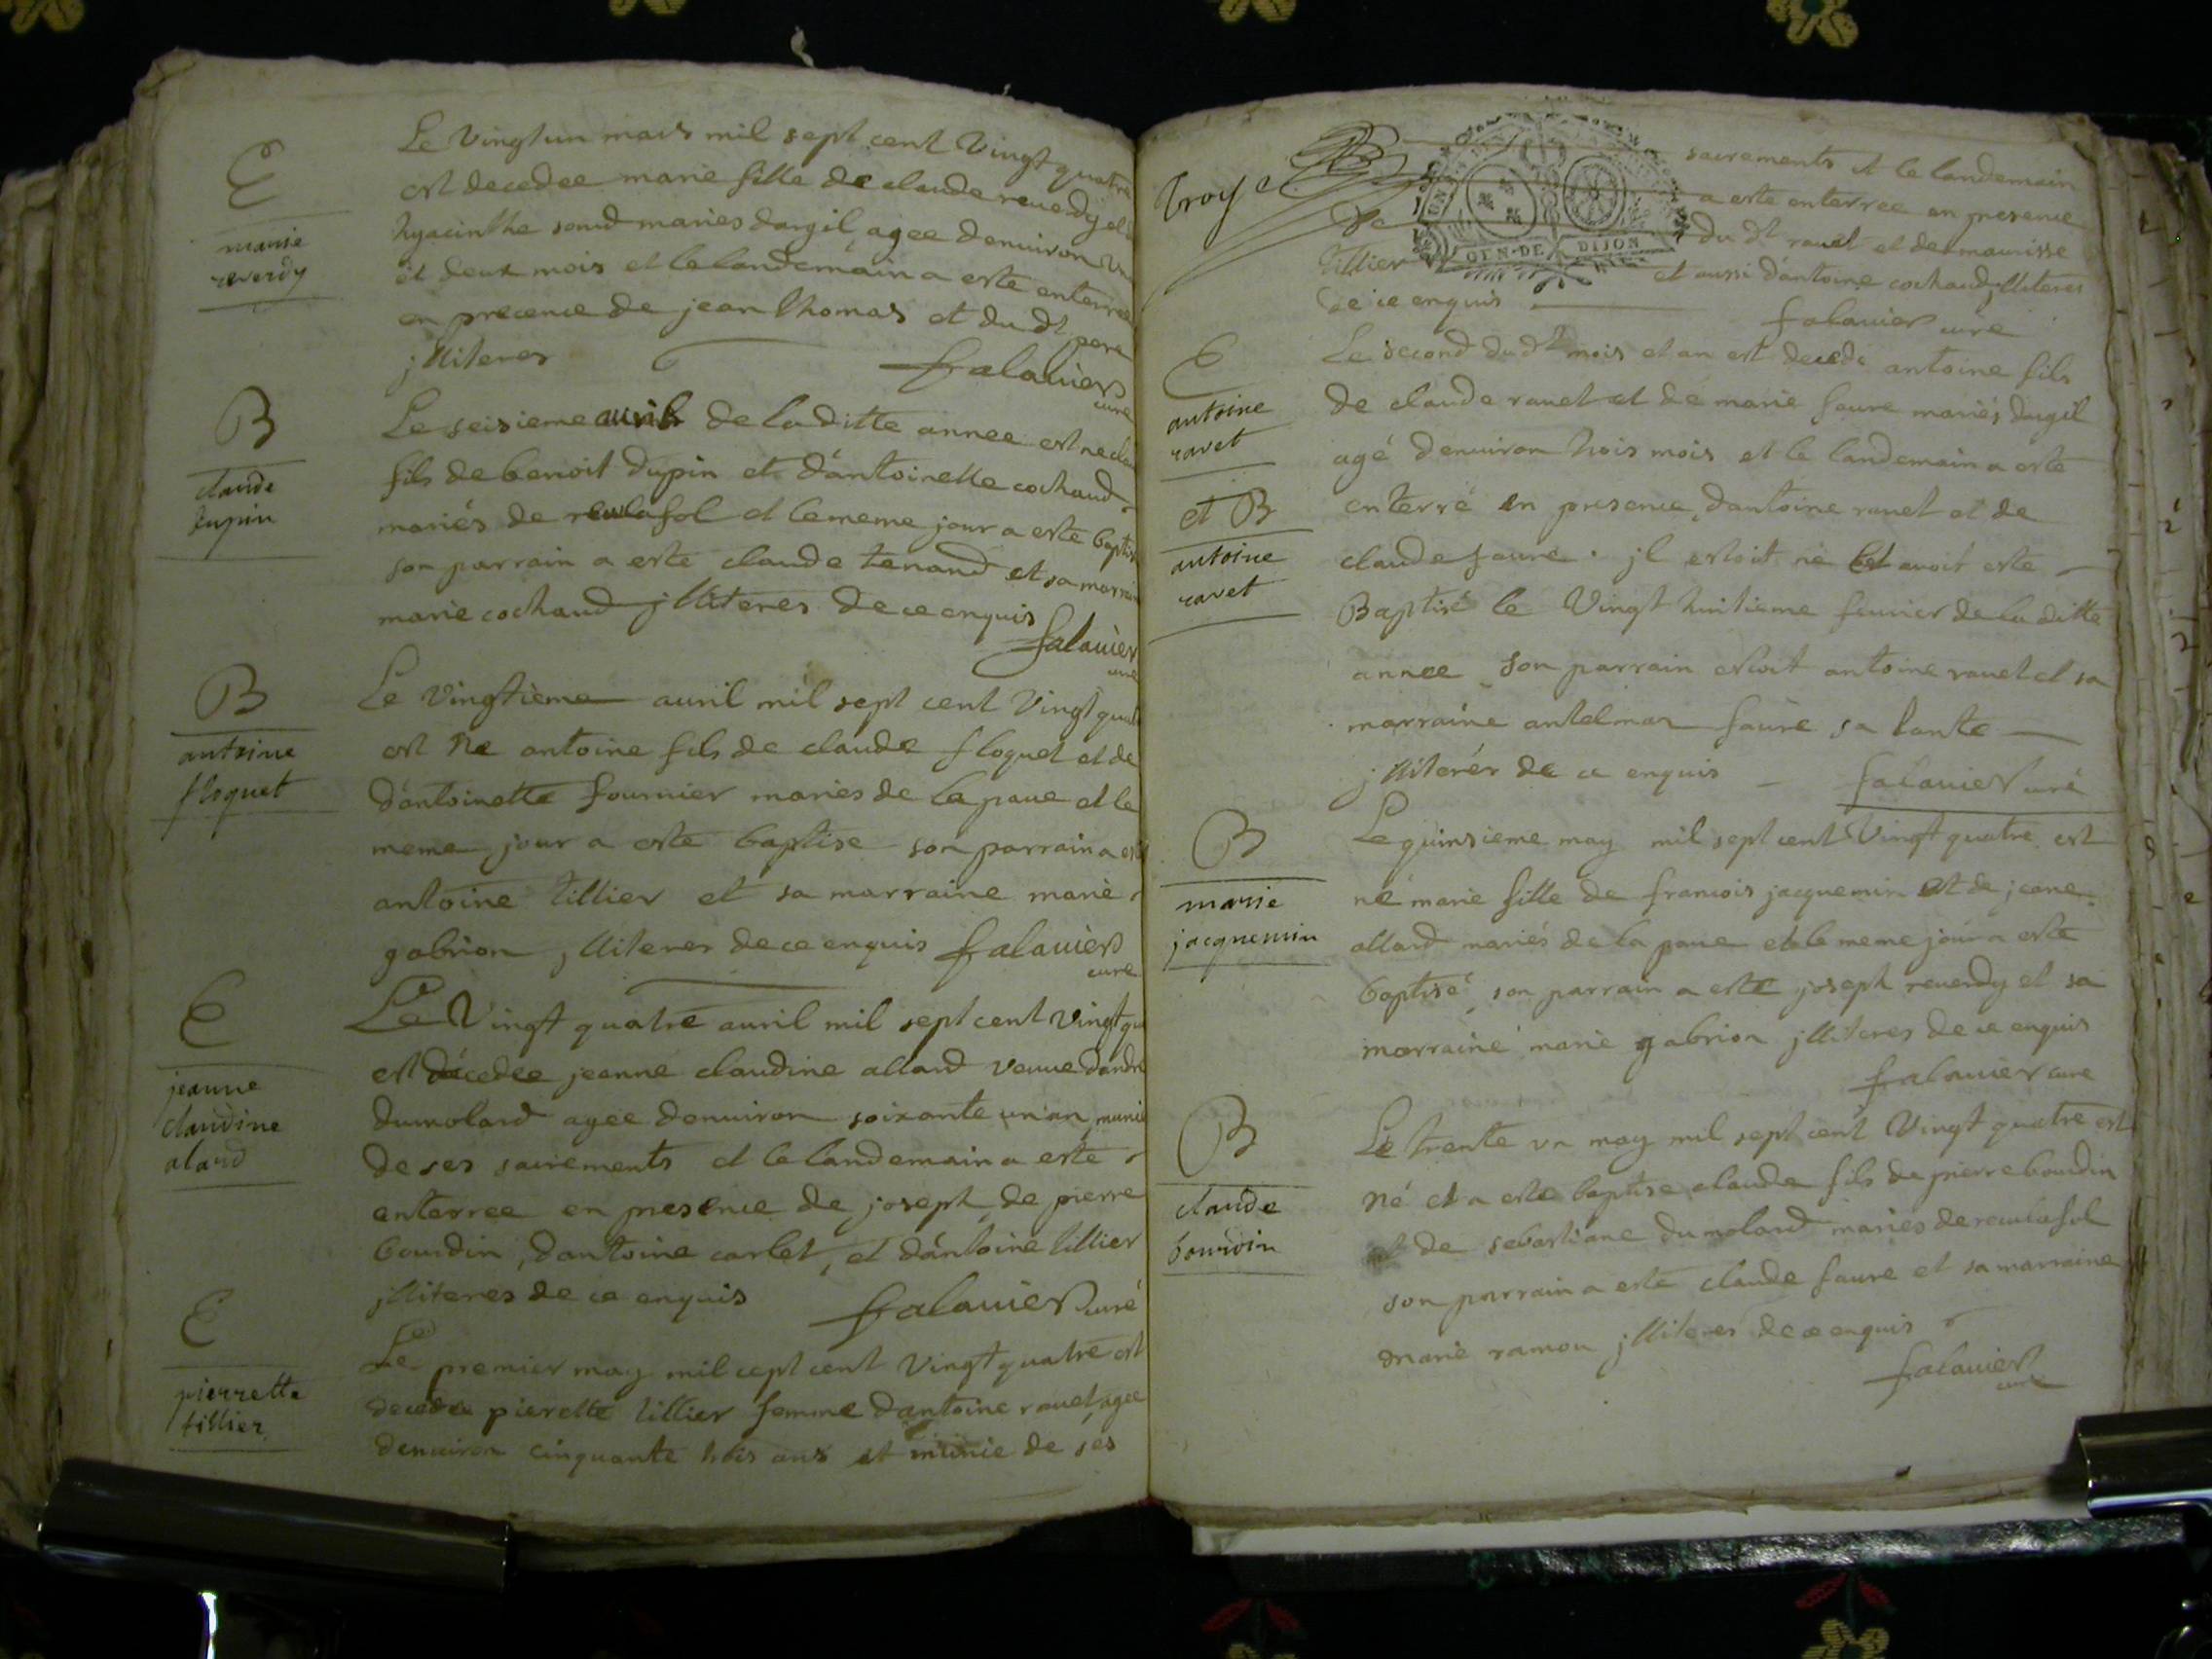 E
marie
reverdy
Le Vingtun mars mil sept cent Vingt quatre
est decedee marie fille de claude reuerdy et
hyacinthe sond maries dargil agee denuiron un
et deux mois et le landemain a este enterree
en precence de jean thomas et du dt pere
jlliteres falauier
cure
B
claude
dupin
Le seisieme auril de laditte annee est ne clau
fils de benoit dupin et d'antoinette cochaud
mariés de reculafol et le meme jour a este baptise
son parrain a este claude tenand et sa marraine
marie cochaud jlliteres de ce enquis
falauier
cure
B
antoine
floquet
Le Vingtieme auril mil sept cent Vingt quat
est ne antoine fils de claude floquet et de
d'antoinette fournier mariés de la paue et le
meme jour a este baptise son parrain a esté
antoine tillier et sa marraine marie
gabrion jlliteres de ce enquis falauier
cure
E
jeanne
claudine
alard
Le Vingt quatre auril mil sept cent vingt qu
est décedee jeanne claudine allard veuue dandré
dumolard agee denuiron soixante un an munie
de ses sacrements et le landemain a este
enterree en presence de joseph, de pierre
bourdin, dantoine carlet, et d'antoine tillier
jlliteres de ce enquis falauier curé
E
pierrette
tillier
Le premier may mil cept cent Vingt quatre est
decedee pierette tillier femme dantoine rauet, agee
denuiron cinquante trois ans et munie de ses
troye
sacrements et le landemain
a este enterree en presence
De du dt rauet et de maurisse
GEN·DE DIJON
tillier et aussi d'antoine cochaud jlliteres
de ce enquis
falauier cure
E
antoine
ravet
Le second du dt mois et an est decede antoine fils
de claude rauet et de marie faure mariés dargil
agé denuiron trois mois et le landemain a este
enterré en presence, dantoine rauet et de
et B
antoine
ravet
claude faure. jl estoit né et auoit este
Baptisé le Vingt huitieme feurier de la ditte
annee son parrain estoit antoine rauet et sa
marraine antelmar faure sa tante
jlliterér de ce enquis falauier curé
B
marie
jacquemin
Le quinsieme may mil sept cent Vingt quatre est
né marie fille de francois jacquemin et de jeane
allard mariés de la paue et le meme jour a este
baptisé, son parrain a este joseph reuerdy et sa
marraine marie gabrion jlliteres de ce enquis
falauier cure
B
claude
bourdin
Le trente un may mil sept cent Vingt quatre est
né et a este baptise claude fils de pierre bourdin
et de sebastiane dumolard mariés de reculafol
son parrain a esté claude faure et sa marraine
marie ramon jlliteres de ce enquis
falauier
cure